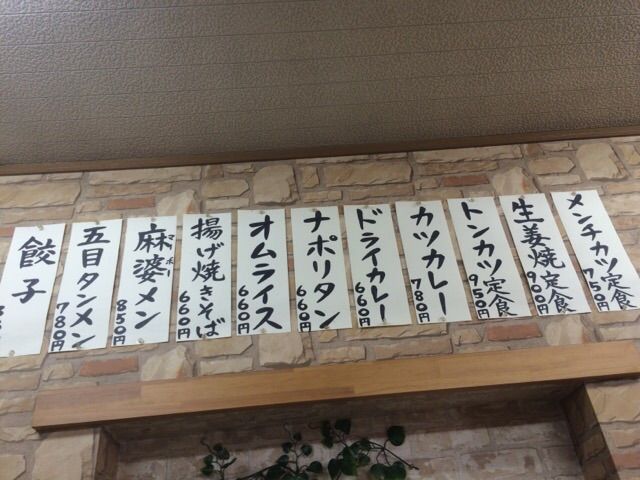 メンチカツ定食
750円
生姜焼定食
900円
トンカツ定食
950円
カツカレー
710円
ドライカレー
660円
ナポリタン
660円
オムライス
660円
揚げ焼きそば
660円
麻婆メン
マーボー
850円
五目タンメン
780円
餃子